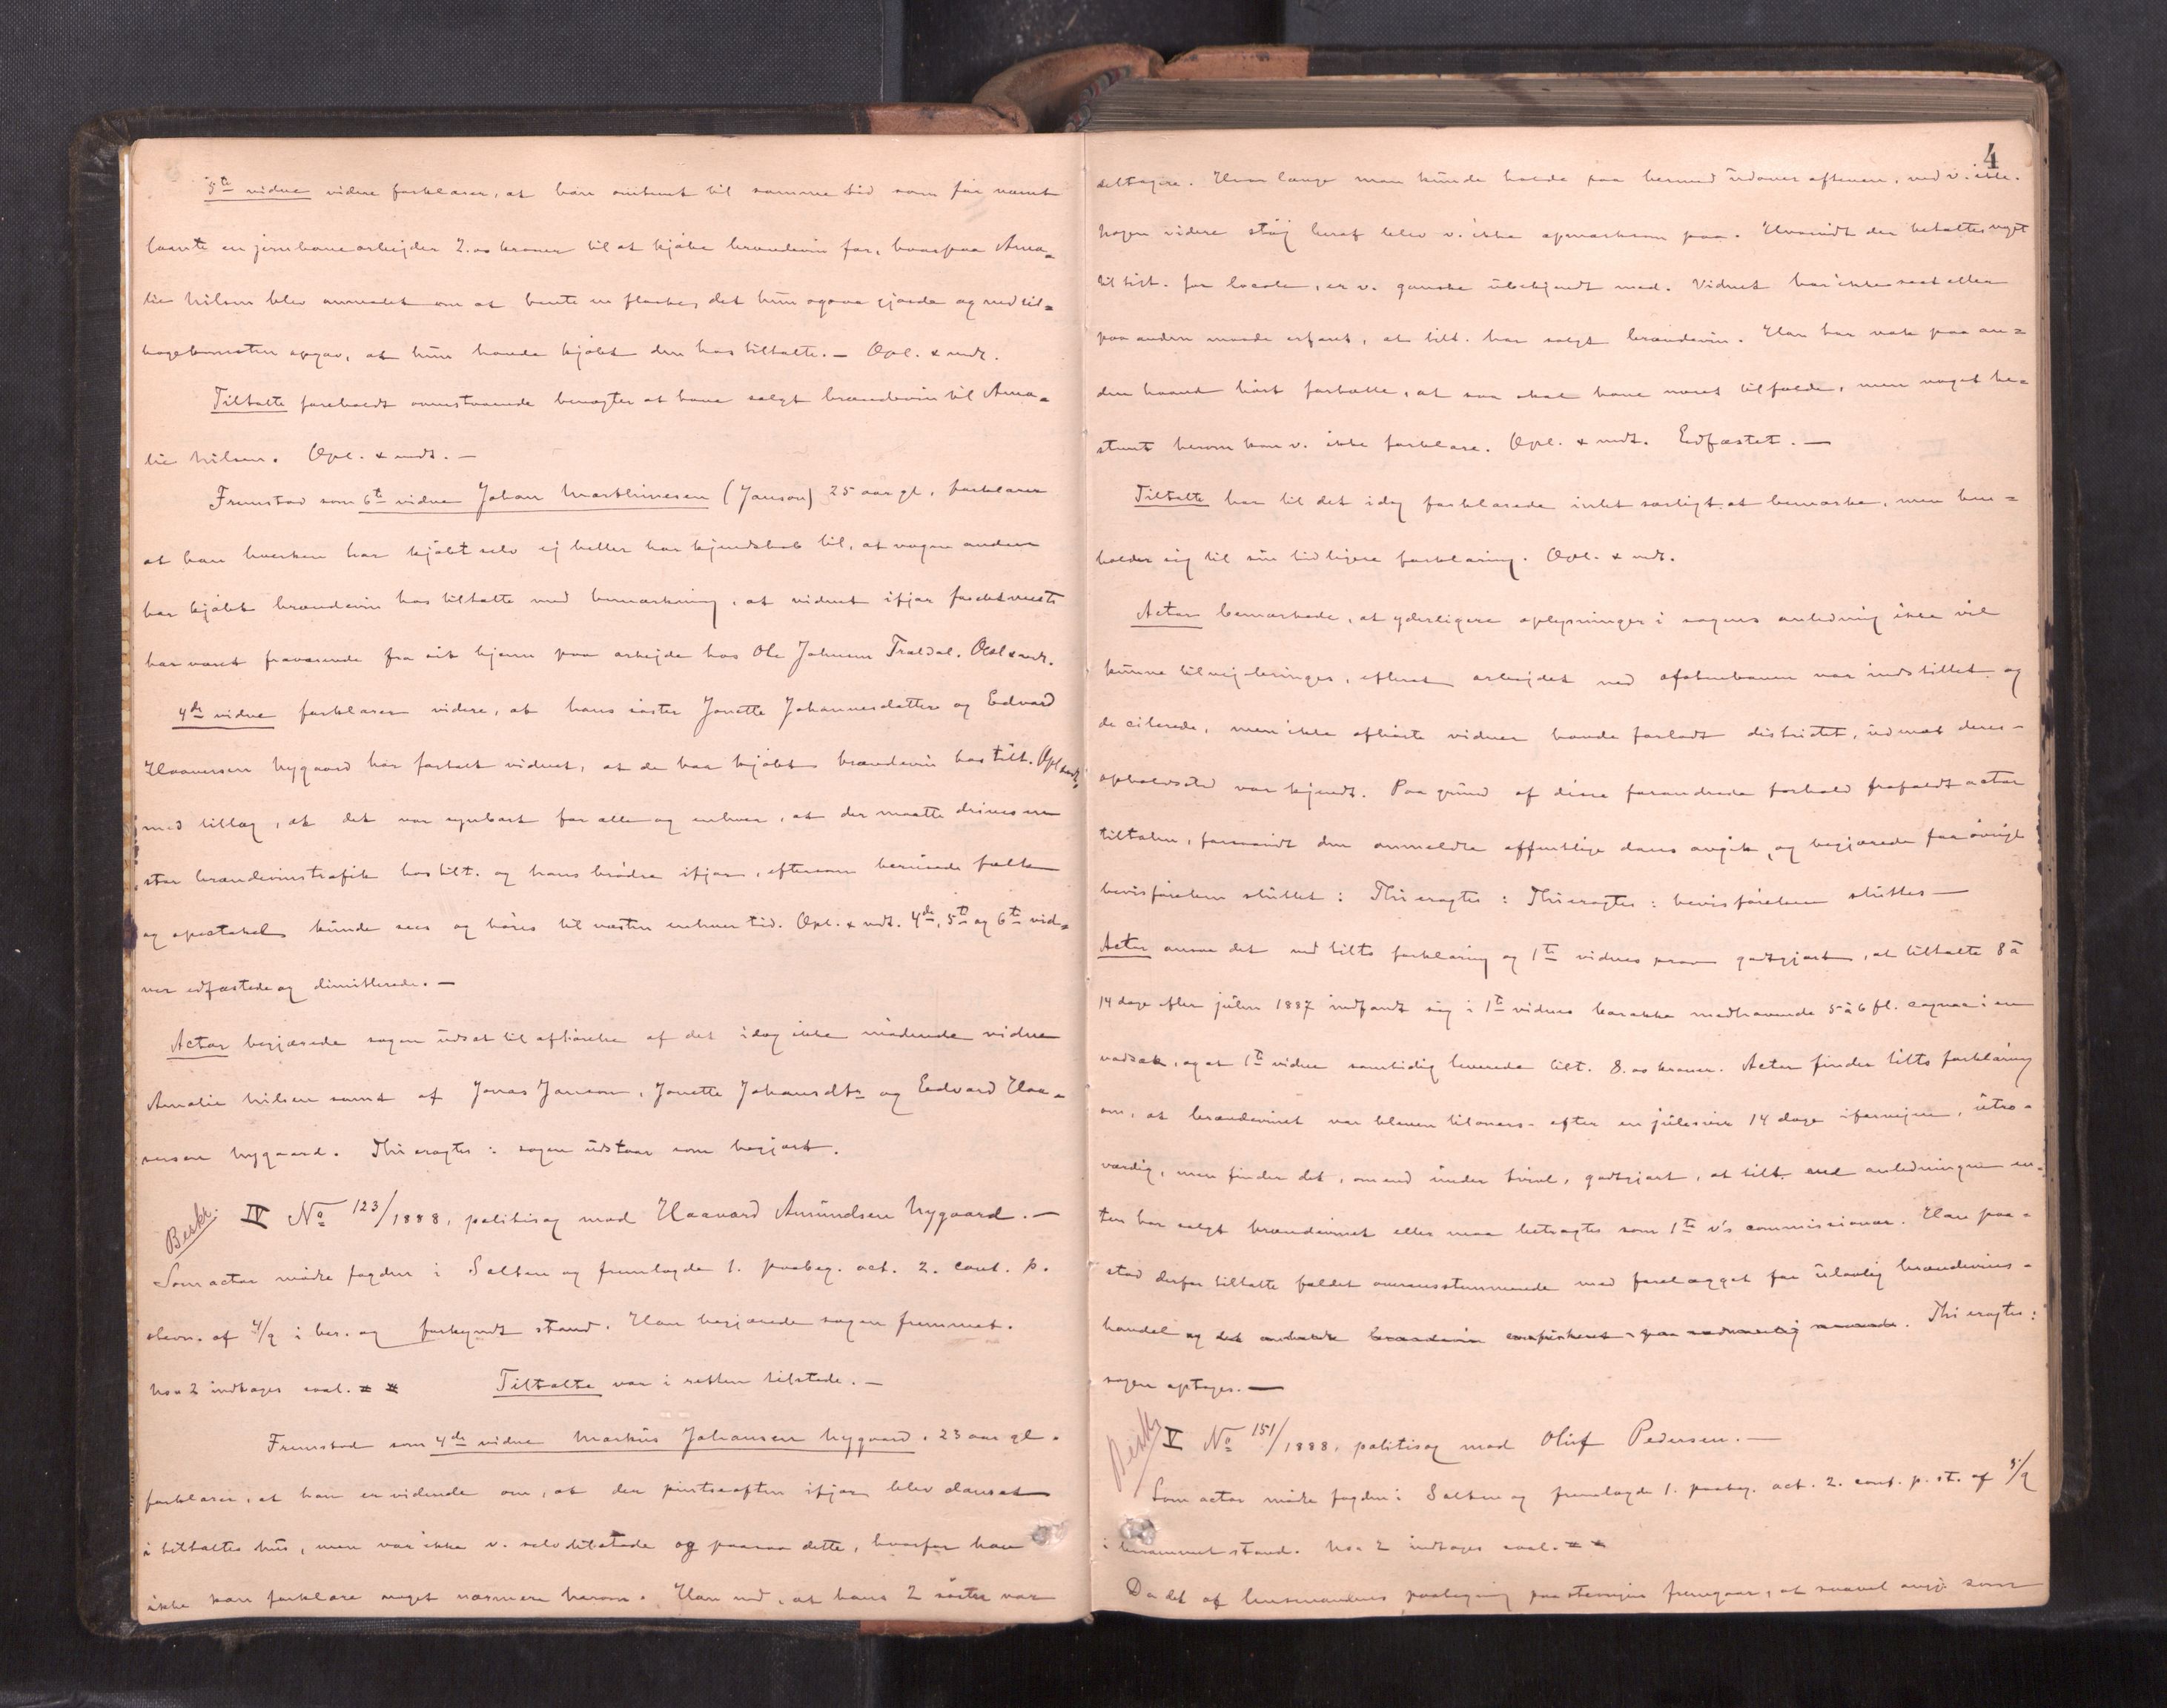 5te vidne videre forklarer, at han omtrent til samme tid som før nævnt
laante en jernbanearbejder 2.00 kroner til at kjøbe brændevin for, hvorpaa Ama-
lie Nilsen blev anmodet om at hente en flaske, det hun ogsaa gjorde og ved til-
bagekomsten opgav, at hun havde kjøbt den hos tiltalte. – Opl. & vedt.
Tiltalte foreholdt ovenstaaende benægter at have solgt brændevin til Ama-
lie Nilsen. Opl. & vedt. –
Fremstod som 6te vidne Johan Marthinesen (Janson) 25 aar gl., forklarer
at han hverken har kjøbt selv ej heller har kjendskab til, at nogen anden
har kjøbt brændevin hos tiltalte med bemærkning, at vidnet ifjor
har været fraværende fra sit hjem paa arbejde hos Ole Johnsen Trældal. Opl & vedt.
4de vidne forklarer videre, at hans søster Jonette Johannesdatter og Edvard
Haaversen Nygaard har fortalt vidnet, at de har kjøbt brændevin hos tilt. Opl & vedt.
med tillæg, at det var synbart for alle og enhver, at der maatte drives en
stor brændevinstrafik hos tilt. og hans brødre ifjor, eftersom berusede folk
og spectakel kunde sees og høres til næsten enhver tid. Opl. & vedt. 4de, 5te og 6te vid-
ner edfæstede og dimitterede. –
Actor begjærede sagen udsat til afhørelse af det idag ikke mødende vidne
Amalie Nilsen samt af Jonas Janson, Jonette Johansdtr og Edvard Haa-
versen Nygaard. Thi eragtes: sagen udstaar som begjært.
Beskr. IV No 123/1888, politisag mod Haavard Amundsen Nygaard. –
Som actor mødte fogden i Salten og fremlagde 1. paabeg. act. 2. cont. p.
stevn. af 4/9 i ber. og forkyndt stand. Han begjærede sagen fremmet.
No. 2 indtages saal. Tiltalte var i retten tilstede. –
Fremstod som 4de vidne Markus Johansen Nygaard, 23 aar gl.
forklarer, at han er vidende om, at der pintseaften ifjor blev danset
i tiltaltes hus, men var ikke v. selv tilstede og paasaa dette, hvorfor han
ikke kan forklare noget nærmere herom. Han ved, at hans 2 søstre var
4
deltagere. Hvor længe man kunde holde paa hermed udover aftenen, ved v. ikke.
Nogen videre støj heraf blev v. ikke opmærksom paa. Hvorvidt der betaltes noget
til tilt. for locale, er v. ganske ubekjendt med. Vidnet har ikke seet eller
paa anden maade erfaret, at tilt. har solgt brændevin. Han har vel paa an-
den haand hørt fortælle, at saa skal have været tilfælde, men noget be-
stemt herom kan v. ikke forklare. Opl. & vedt. Edfæstet. –
Tiltalte har til det idag forklarede intet særligt at bemærke, men hen-
holder sig til sin tidligere forklaring. Opl. & vedt.
Actor bemærkede, at yderligere oplysninger i sagens anledning ikke vil
kunne tilvejebringes, efterat arbejdet ved ofotenbanen var indstillet og
de citerede, men ikke afhørte vidner havde forladt districtet, uden at deres
opholdssted var kjendt. Paa grund af disse forandrede forhold frafaldt actor
tiltalen, forsaavidt den anmeldte offentlige dans angik, og begjærede forøvrigt
bevisførelsen sluttet: Thi eragtes: Thi eragtes: bevisførelsen sluttes –
Actor ansaa det ved tilts forklaring og 1te vidnes prov godtgjort, at tiltalte 8 à
14 dage efter julen 1887 indfandt sig i 1te vidnes barakke medhavende 5 à 6 fl. cognac i en
vadsæk, og at 1te vidne samtidig leverede tilt. 8.00 kroner. Actor finder tilts forklaring
om, at brændevinet var bleven tilovers efter en julerejse 14 dage iforvejen, utro-
værdig, men finder det, om end under tvivl, godtgjort, at tilt. ved anledningen en-
ten har solgt brændevinet eller maa betragtes som 1te v's commissionær. Han paa-
stod derfor tiltalte fældet overensstemmende med forelægget for ulovlig brændevins-
handel og det brændevin confiskeret paa maade. Thi eragtes:
sagen optages. –
Beskr V No 151/1888, politisag mod Oluf Pedersen. –
Som actor mødte fogden i Salten og fremlagde 1. paabeg. act. 2. cont. p. st. af 5/9
i berammet stand. No. 2 indtages saal.
Da det af lensmandens paategning paa stevningen fremgaar, at saavel som